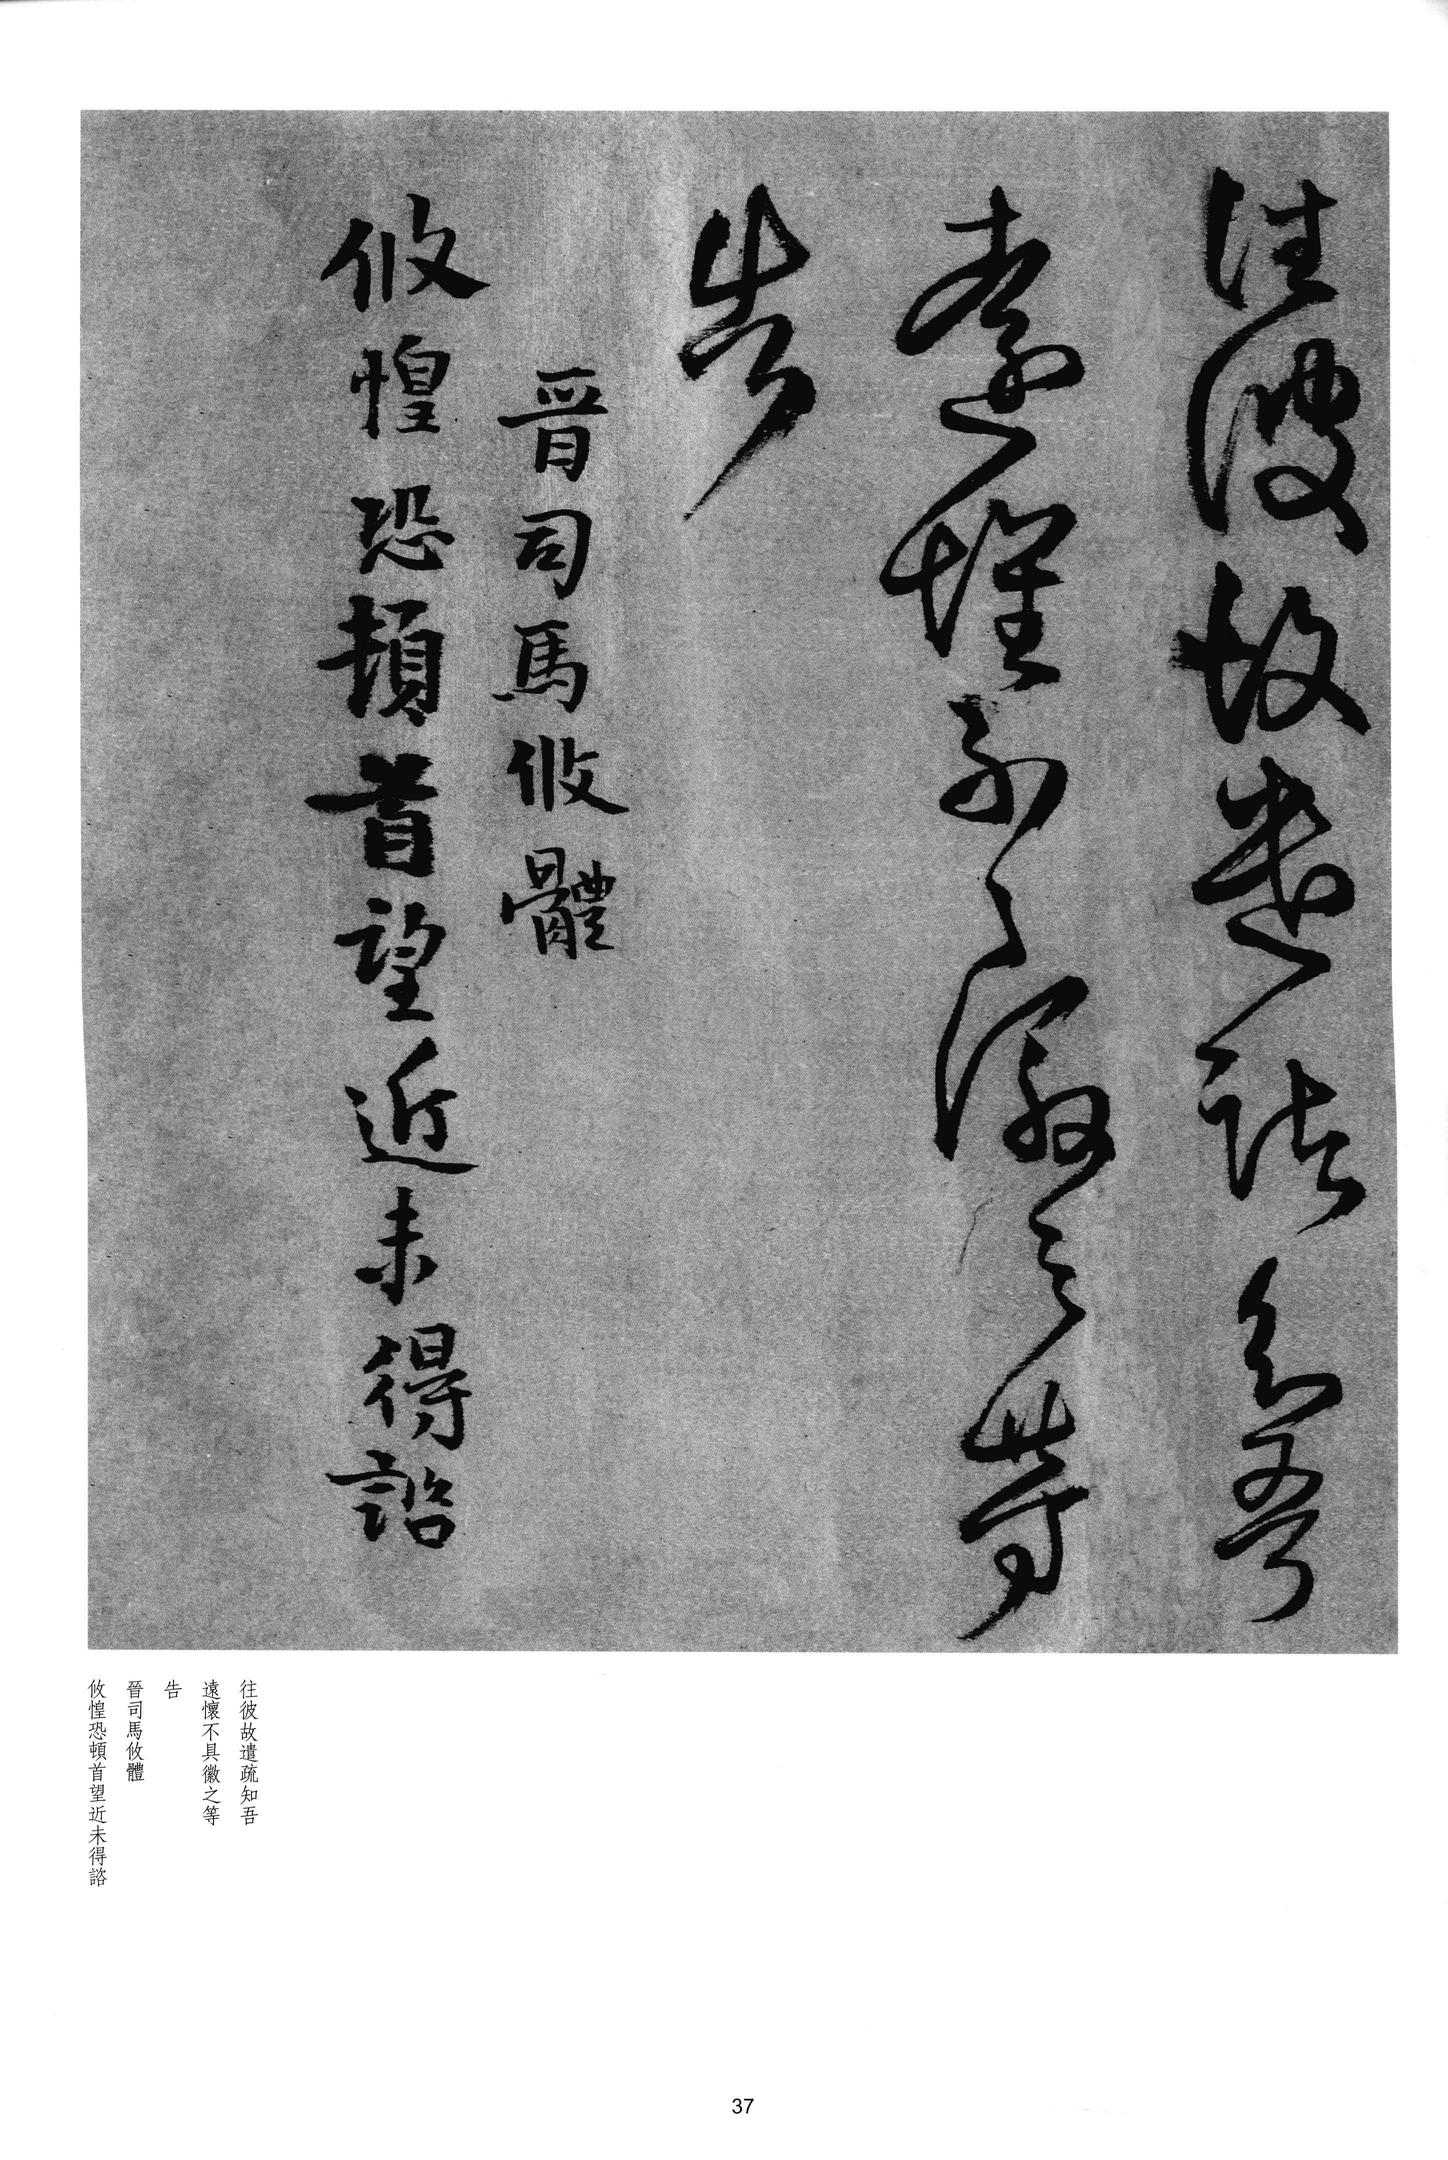 往彼故遣疏知吾
遠懷不具徽之等
告
晉司馬攸體
攸惶恐頓首望近未得諮
往彼故遣疏知吾
遠懷不具徽之等
告
晉司馬攸體
攸惶恐頓首望近未得諮
37